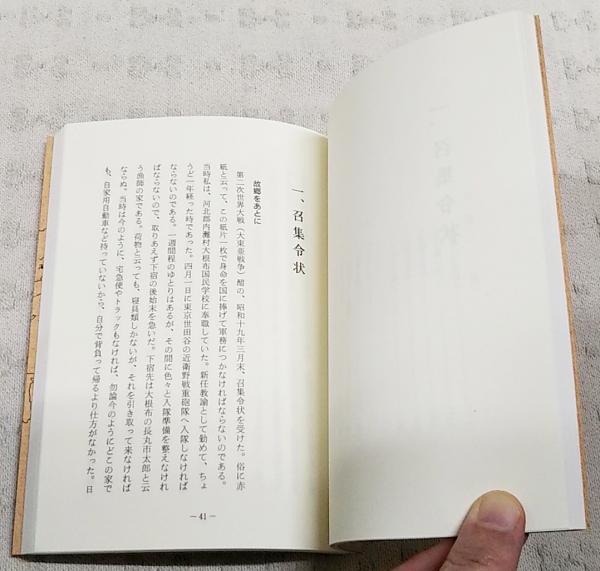 一、召集令状
故郷をあとに
第二次世界大戦（大東亜戦争）酣の、昭和十九年三月末、召集令状を受けた。俗に赤
紙と云って、この紙片一枚で身命を国に捧げて軍務につかなければならないのである。
当時私は、河北郡内灘村大根布国民学校に奉職していた。新任教諭として勤めて、ちょ
うど一年経った時であった。四月一日に東京世田谷の近衛野戦重砲隊へ入隊しなければ
ならないのである。一週間程のゆとりはあるが、その間に色々と入隊準備を整えなけれ
ばならないので、取りあえず下宿の後始末を急いだ。下宿先は大根布の長丸市太郎と云
う漁師の家である。荷物と云っても、寝具類しかないが、それを引き取って来なければ
ならぬ。当時は今のように、宅急便やトラックもなければ、勿論今のようにどこの家で
も、自家用自動車など持っていないから、自分で背負って帰るより仕方がなかった。日
－41－